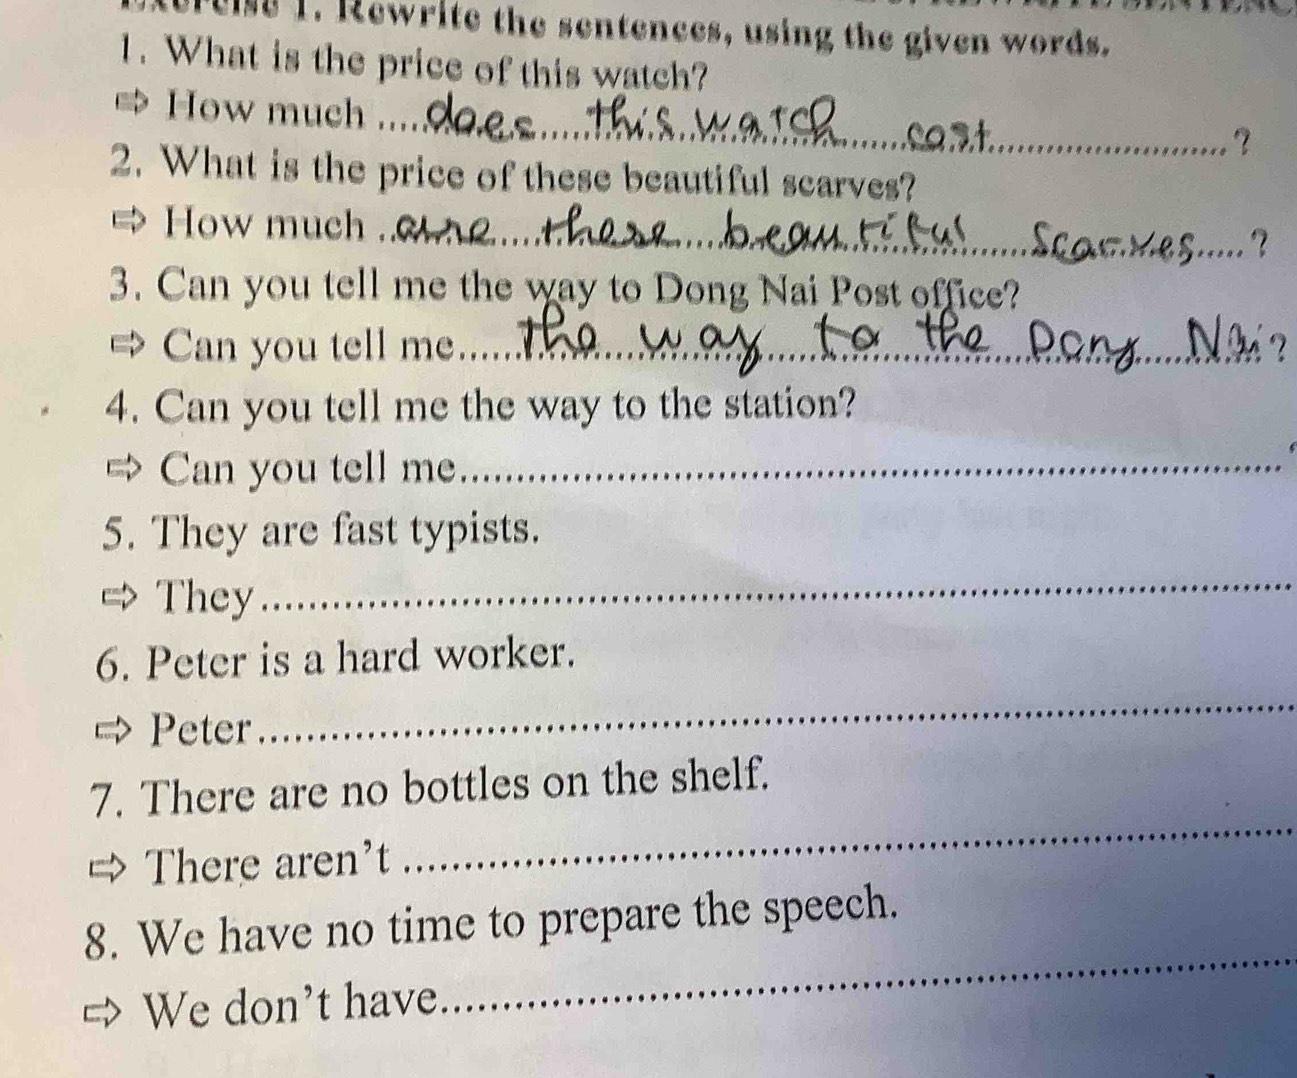 Exercise 1. Rewrite the sentences, using the given words.
1. What is the price of this watch?
⇨ How much .....does.....this watch.....cost.....?
2. What is the price of these beautiful scarves?
⇨ How much ..are....these....beautiful.....scarves.....?
3. Can you tell me the way to Dong Nai Post office?
⇨ Can you tell me......the way to the Dong Nai?
4. Can you tell me the way to the station?
⇨ Can you tell me........................................
5. They are fast typists.
⇨ They........................................
6. Peter is a hard worker.
⇨ Peter........................................
7. There are no bottles on the shelf.
⇨ There aren't ........................................
8. We have no time to prepare the speech.
⇨ We don't have........................................